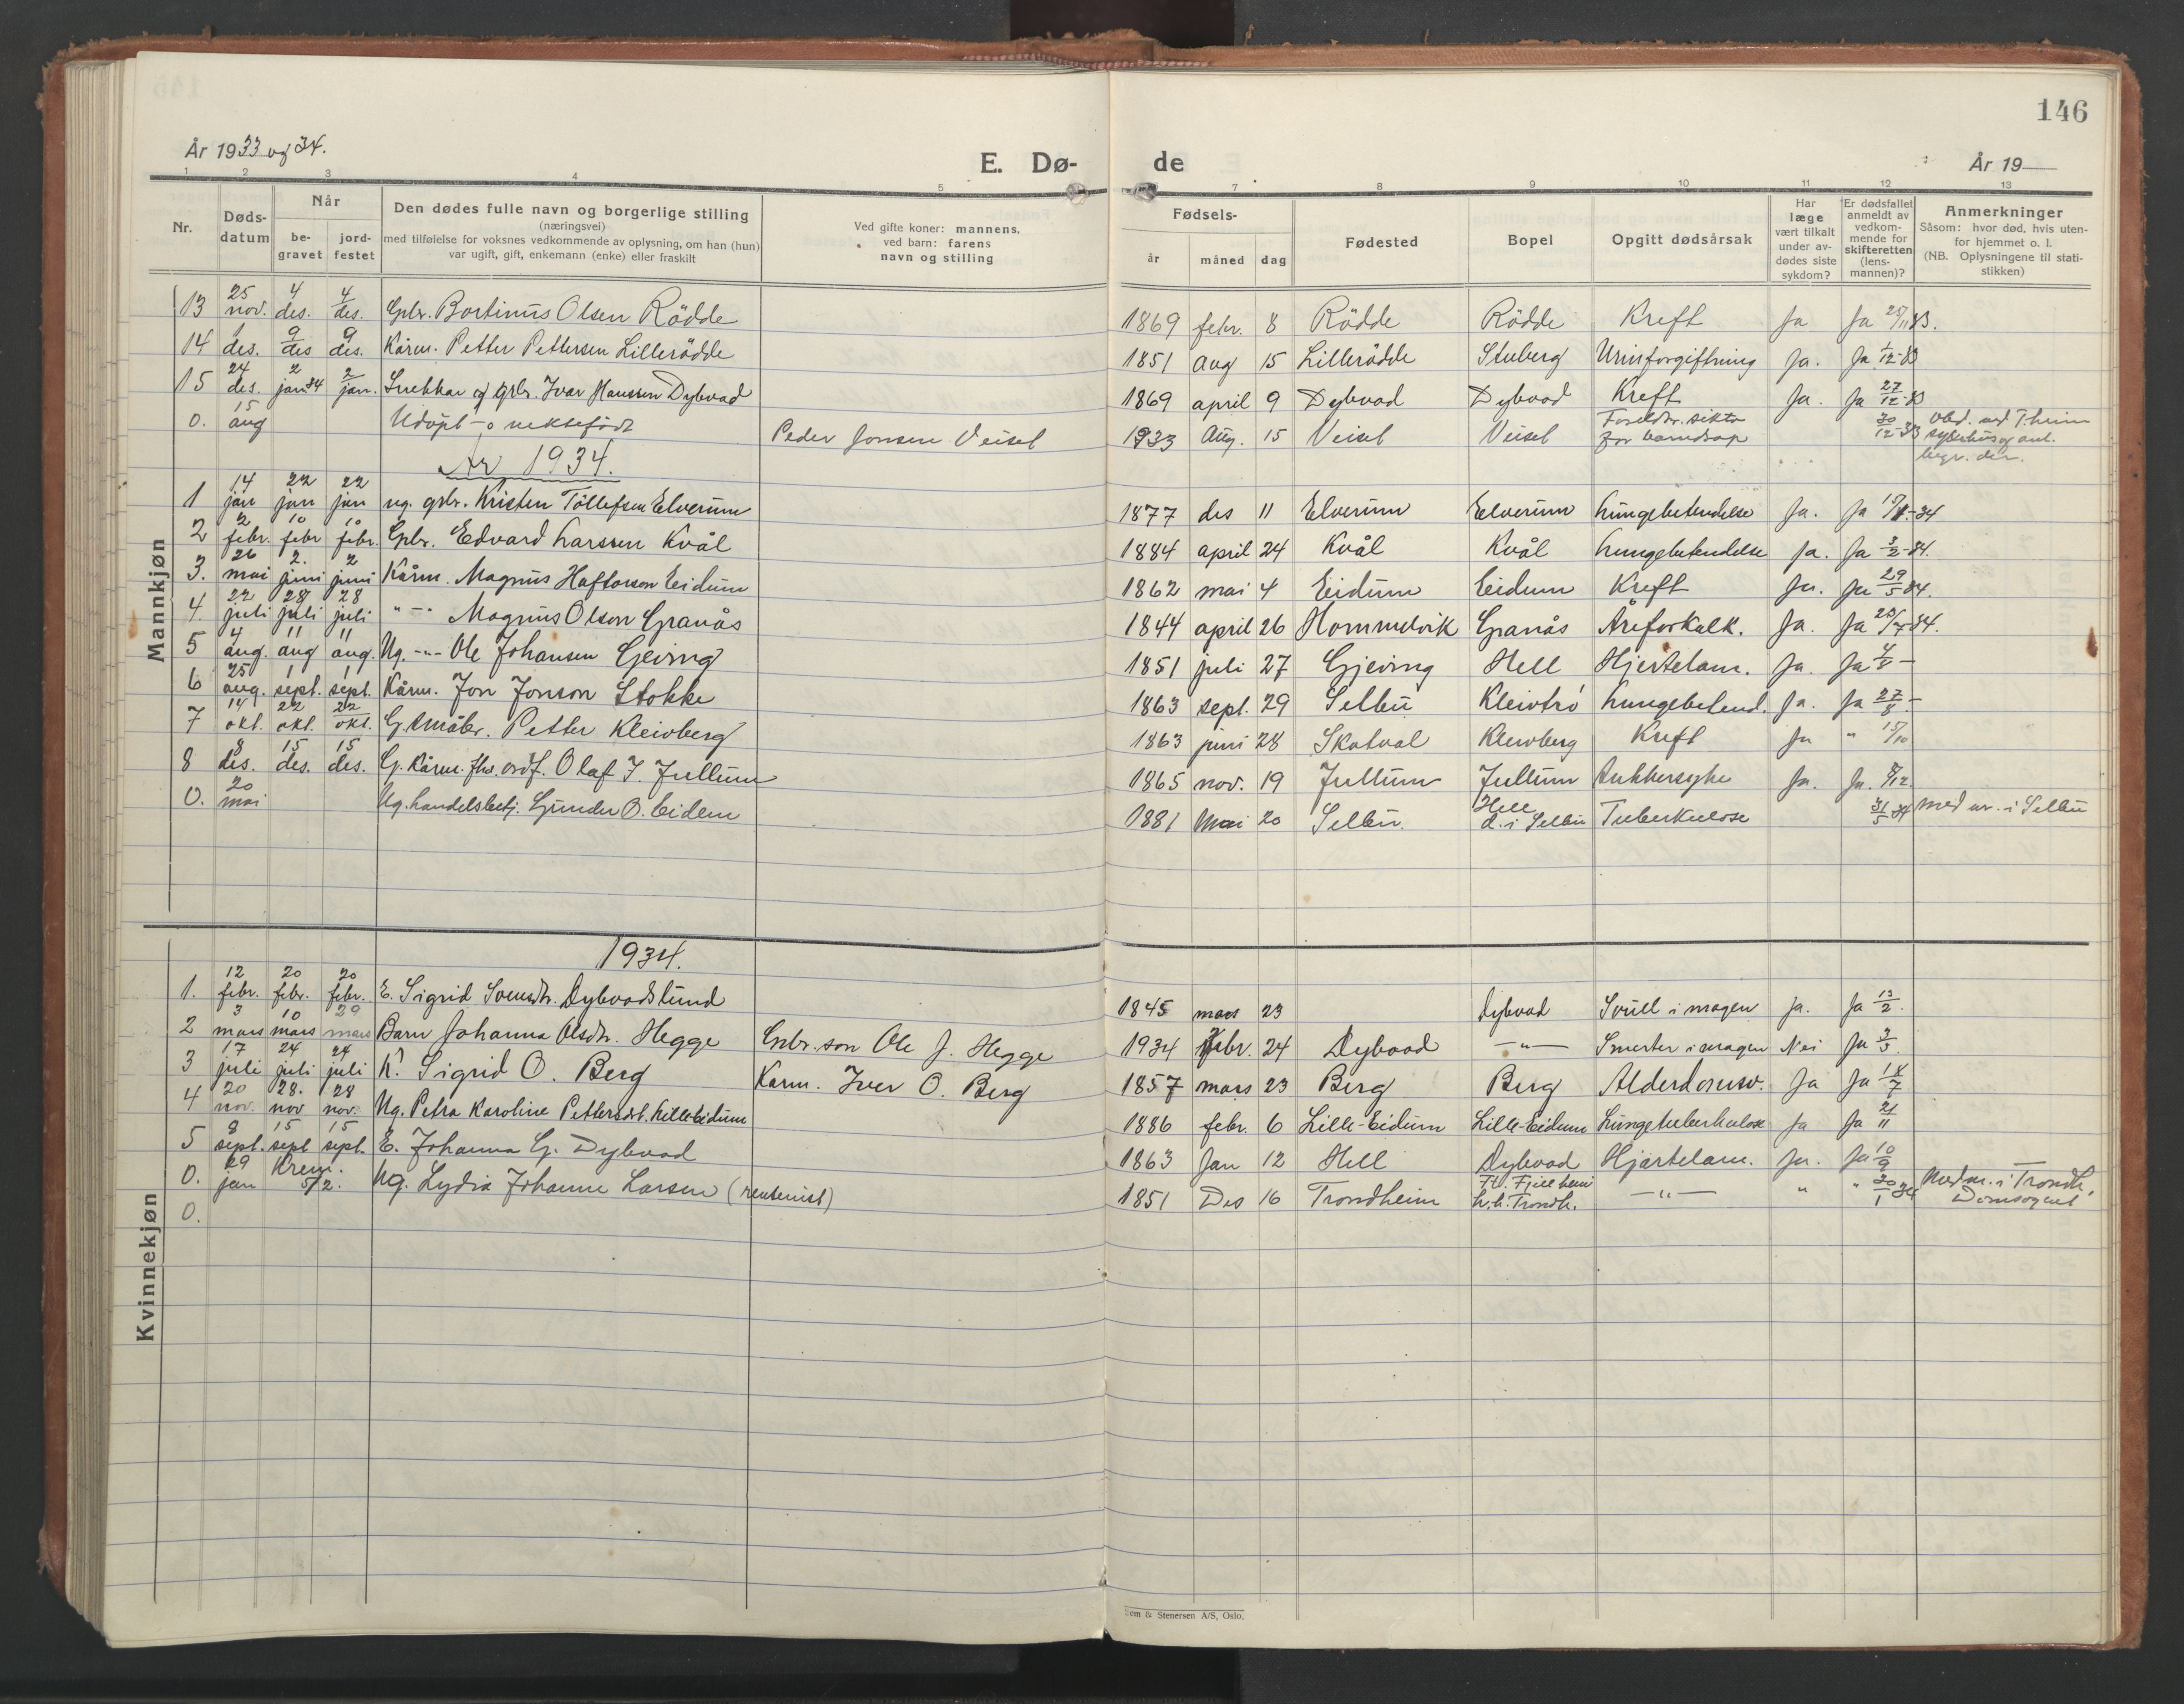 146
År 1933 og 34.
E. Dø-
de
År 19
1 2 3 4 5 7 8 9 10 11 12 13
Nr.
Døds-
datum
Når
be-
gravet
jord-
festet
Den dødes fulle navn og borgerlige stilling
(næringsvei)
med tilføielse for voksnes vedkommende av oplysning, om han (hun)
var ugift, gift, enkemann (enke) eller fraskilt
Ved gifte koner: mannens,
ved barn: farens
navn og stilling
Fødsels-
år måned dag
Fødested
Bopel
Opgitt dødsårsak
Har
læge
vært tilkalt
under av-
dødes siste
sykdom?
Er dødsfallet
anmeldt av
vedkom-
mende for
skifteretten
(lens-
mannen)?
Anmerkninger
Såsom: hvor død, hvis uten-
for hjemmet o. l.
(NB. Oplysningene til stati-
stikken)
Mannkjøn
13 25 nov. 4 des. 4 des. Gbr. Bortinus Olsen Rödde 1869 febr. 8 Rödde Rödde Kreft Ja Ja 25/11 33.
14 1 des. 9 des 9 des. Kårm. Petter Pettersen Lillerödde 1851 aug 15 Lillerödde Stuberg Urinforgiftning Ja. Ja 1/12-33
15 24 des. 2 jan 34 2 jan. Snekker og gbr. Ivar Hanssen Dybvad 1869 april 9 Dybvad Dybvad Kreft Ja. Ja 27/12-33
0. 15 aug Udöpt Peder Jonsen Veisel 1933 Aug. 15 Veisel Veisel Foreldr. sikta for barnedrap 30/12-33 Obd. ved T.heim sykehus og ant. begr. der.
År 1934.
1 14 jan 22 jan 22 jan ug. gbr. Kristen Töllefsen Elverum 1877 des 11 Elverum Elverum Lungebetendelse Ja. Ja 15/1-34
2 2 febr. 10 febr 10 febr. Gbr. Edvard Larssen Kvål 1884 april 24 Kvål Kvål Lungebetendelse Ja. Ja 3/2-34.
3. 26 mai 2. juni 2 juni Kårm. Magnus Haftorson Eidum 1862 mai 4 Eidum Eidum Kreft Ja. Ja 29/5 34.
4. 22 juli 28 juli 28 juli " - " Magnus Olson Granås 1844 april 26 Hommelvik Granås Åreforkalk. Ja. Ja 23/7-34.
5 4 aug. 11 aug 11 aug. Ug. -"- Ole Johansen Gjeving 1851 juli 27 Gjeving Hell Hjertelam. Ja. Ja 4/8 -
6 25 aug. 1 sept. 1 sept. Kårm. Jon Jonson Stokke 1863 sept. 29 Selbu Kleivtrö Lungebetend. Ja. Ja 27/8 -
7 14 okt. 22 okt. 22 okt. G. småbr. Petter Kleivberg 1863 juni 28 Skatval Kleivberg Kreft Ja " 15/10
8 8 des. 15 des. 15 des. G. Kårm. fhv. ordf. Olaf J. Jullum 1865 nov. 19 Jullum Jullum Sukkersyke Ja. Ja. 8/12
0. 20 mai Ug. handelsbetj. Gunder O. Eidem 1881 Mai 20 Selbu. Hell d. i Selbu Tuberkulose 31/5 34 Med nr. i Selbu
Kvinnekjøn
1934.
1. 12 febr. 20 febr. 20 febr. E. Sigrid Svensdtr. Dybvadslund 1845 mars 23 Dybvad Svull i magen Ja. Ja 13/2.
2 3 mars 10 mars 29 mars Barn Johanna Olsdtr. Hegge Gbr. son Ole J. Hegge 1934 febr. 24 Dybvad -"- Smerter i magen Nei Ja 3/3.
3 17 juli 24 juli 24 juli K. Sigrid O. Berg Kårm. Iver O. Berg 1857 mars 23 Berg Berg Alderdomsv. Ja Ja 18/7
4 20 nov. 28. nov 28 nov. Ug. Petra Karoline Pettersdt. Lille-Eidum 1886 febr. 6 Lille-Eidum Lille-Eidum Lungetuberkulose Ja Ja 21/11
5 8 sept. 15 sept 15 sept. E. Johanna G. Dybvad 1863 Jan 12 Hell Dybvad Hjartelam. Ja. Ja 10/9
0. 29 jan Krem. 5/2. Ug. Lydia Johanne Larsen (rentenist) 1851 Des 16 Trondheim Fjellheim Trondh. -"- " " 30/1 34 Med nr. i Trondh. Domsogned
0.
& Stenersen A/S, Oslo.